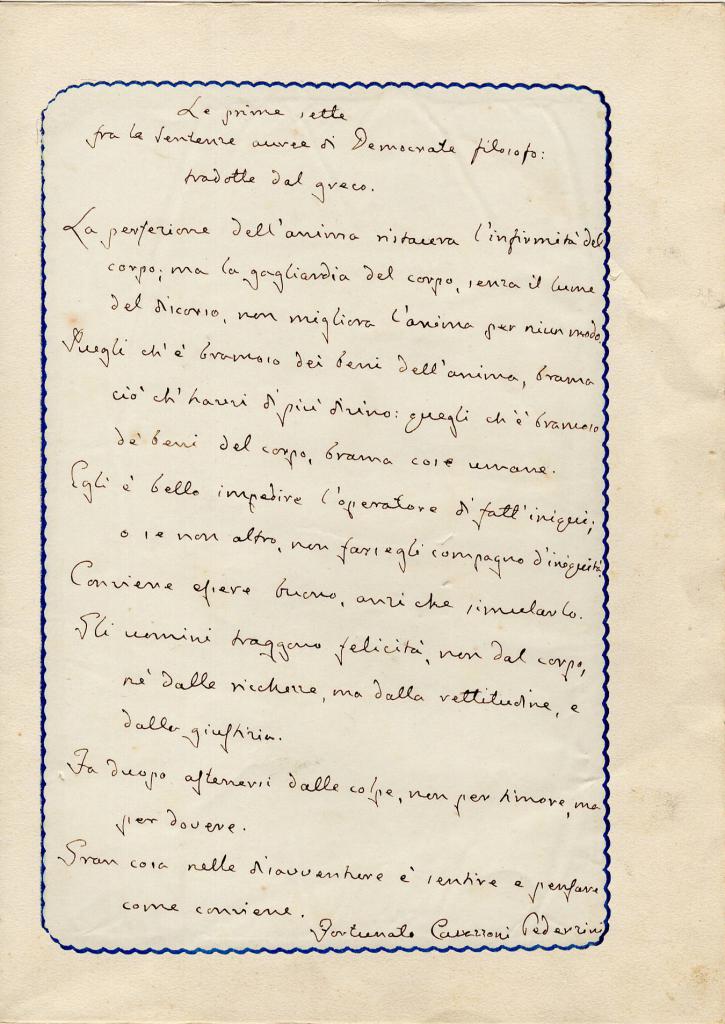 Le prime sette
fra le Sentenze auree di Democrate filosofo:
tradotte dal greco.
La perfezione dell'anima ristaura l'infirmità del
corpo; ma la gagliardia del corpo, senza il lume
del discorso, non migliora l'anima per niun modo.
Quegli ch'è bramoso dei beni dell'anima, brama
ciò ch'havvi di più divino: quegli ch'è bramoso
de' beni del corpo, brama cose umane.
Egli è bello impedire l'operatore di fatt'iniqui;
o se non altro, non farsegli compagno d'iniquità.
Conviene essere buono, anzi che simularlo.
Gli uomini traggono felicità, non dal corpo,
nè dalle ricchezze, ma dalla rettitudine, e
dalla giustizia.
Fa duopo astenersi dalle colpe, non per timore, ma
per dovere.
Gran cosa nelle disavventure è sentire e pensare
come conviene.
Fortunato Cavazzoni Pederzini